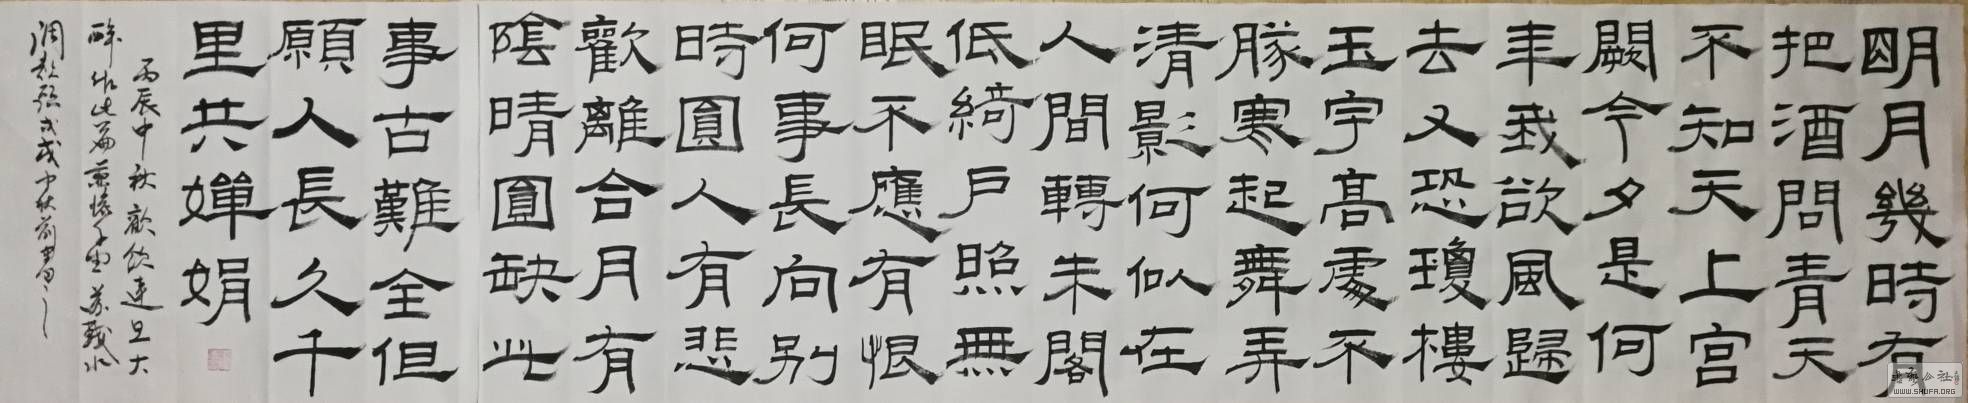 明月幾時有
把酒問青天
不知天上宮
闕今夕是何
年我欲風歸
去又恐瓊樓
玉宇高處不
勝寒起舞弄
清影何似在
人間轉朱閣
低綺戶照無
眠不應有恨
何事長向別
時圓人有悲
歡離合月有
陰晴圓缺此
事古難全但
願人長久千
里共嬋娟
丙辰中秋歡飲達旦大
醉作此篇兼懷子由蘇軾水
調歌頭戊戌中秋前書之
书法公社
WWW.SHUFA.ORG